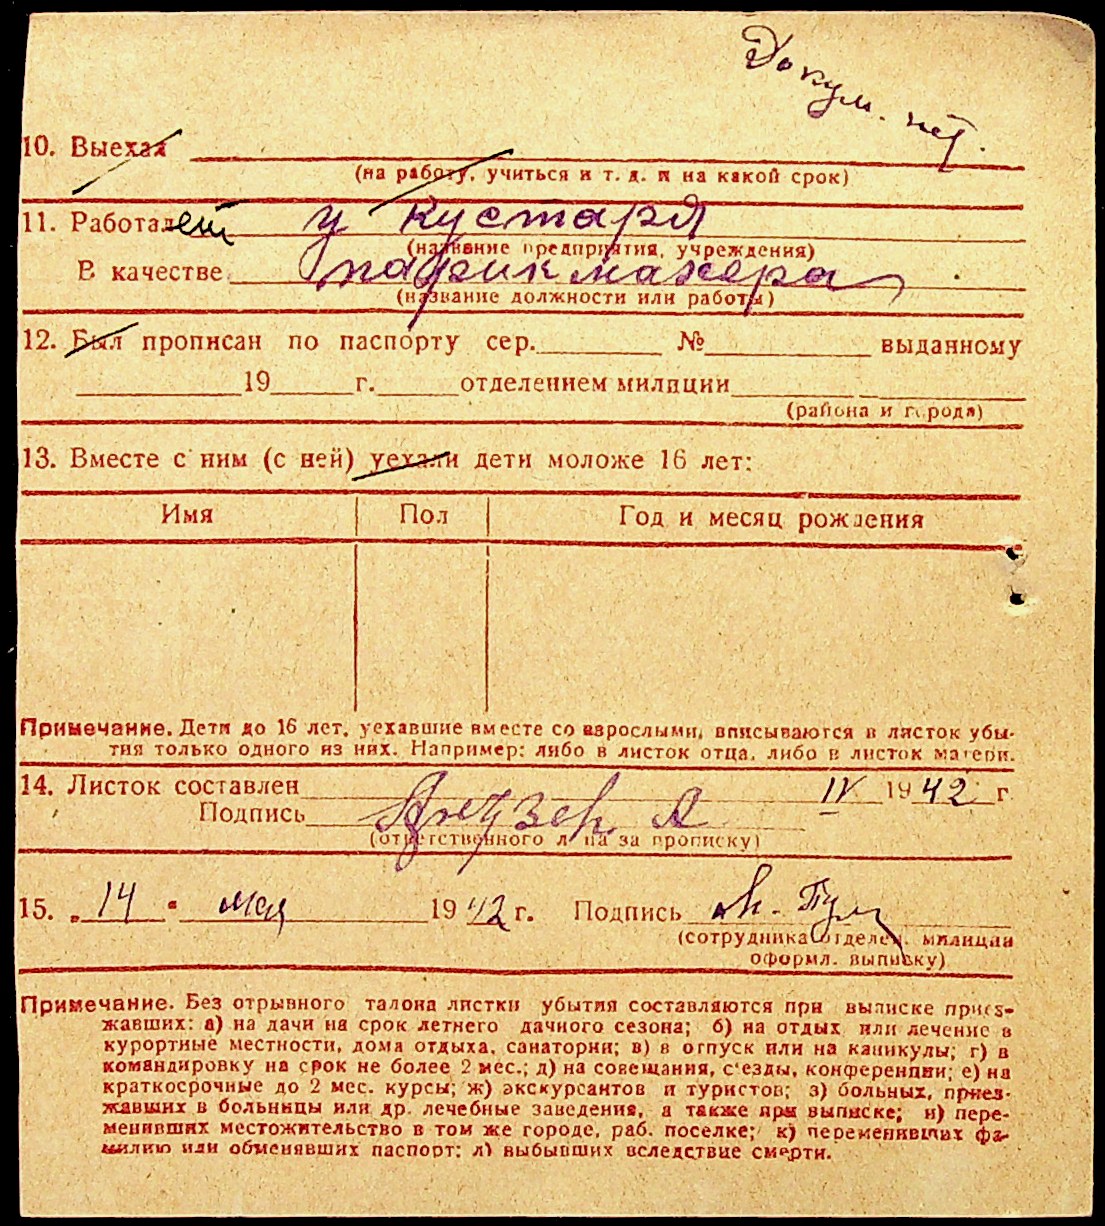 Докум. нет.
10. Выехал
(на работу, учиться и т. д. и на какой срок)
11. Работает у кустаря
(название предприятия, учреждения)
В качестве парикмахера
(название должности или работы)
12. Был прописан по паспорту сер. № выданному
19 г. отделением милиции
(района и города)
13. Вместе с ним (с ней) уехали дети моложе 16 лет:
Имя Пол Год и месяц рождения
Примечание. Дети до 16 лет, уехавшие вместе со взрослыми, вписываются в листок убы-
тия только одного из них. Например: либо в листок отца, либо в листок матери.
14. Листок составлен IV 1942 г.
Подпись А
(ответственного лица за прописку)
15. „14" мая 1942 г. Подпись
(сотрудника отделен. милиции
оформл. выписку)
Примечание. Без отрывного талона листки убытия составляются при выписке приез-
жавших: а) на дачи на срок летнего дачного сезона; б) на отдых или лечение в
курортные местности, дома отдыха, санатории; в) в отпуск или на каникулы; г) в
командировку на срок не более 2 мес.; д) на совещания, с'езды, конференции; е) на
краткосрочные до 2 мес. курсы; ж) экскурсантов и туристов; з) больных, приез-
жавших в больницы или др. лечебные заведения, а также при выписке; и) пере-
менивших местожительство в том же городе, раб. поселке; к) переменивших фа-
милию или обменявших паспорт; л) выбывших вследствие смерти.